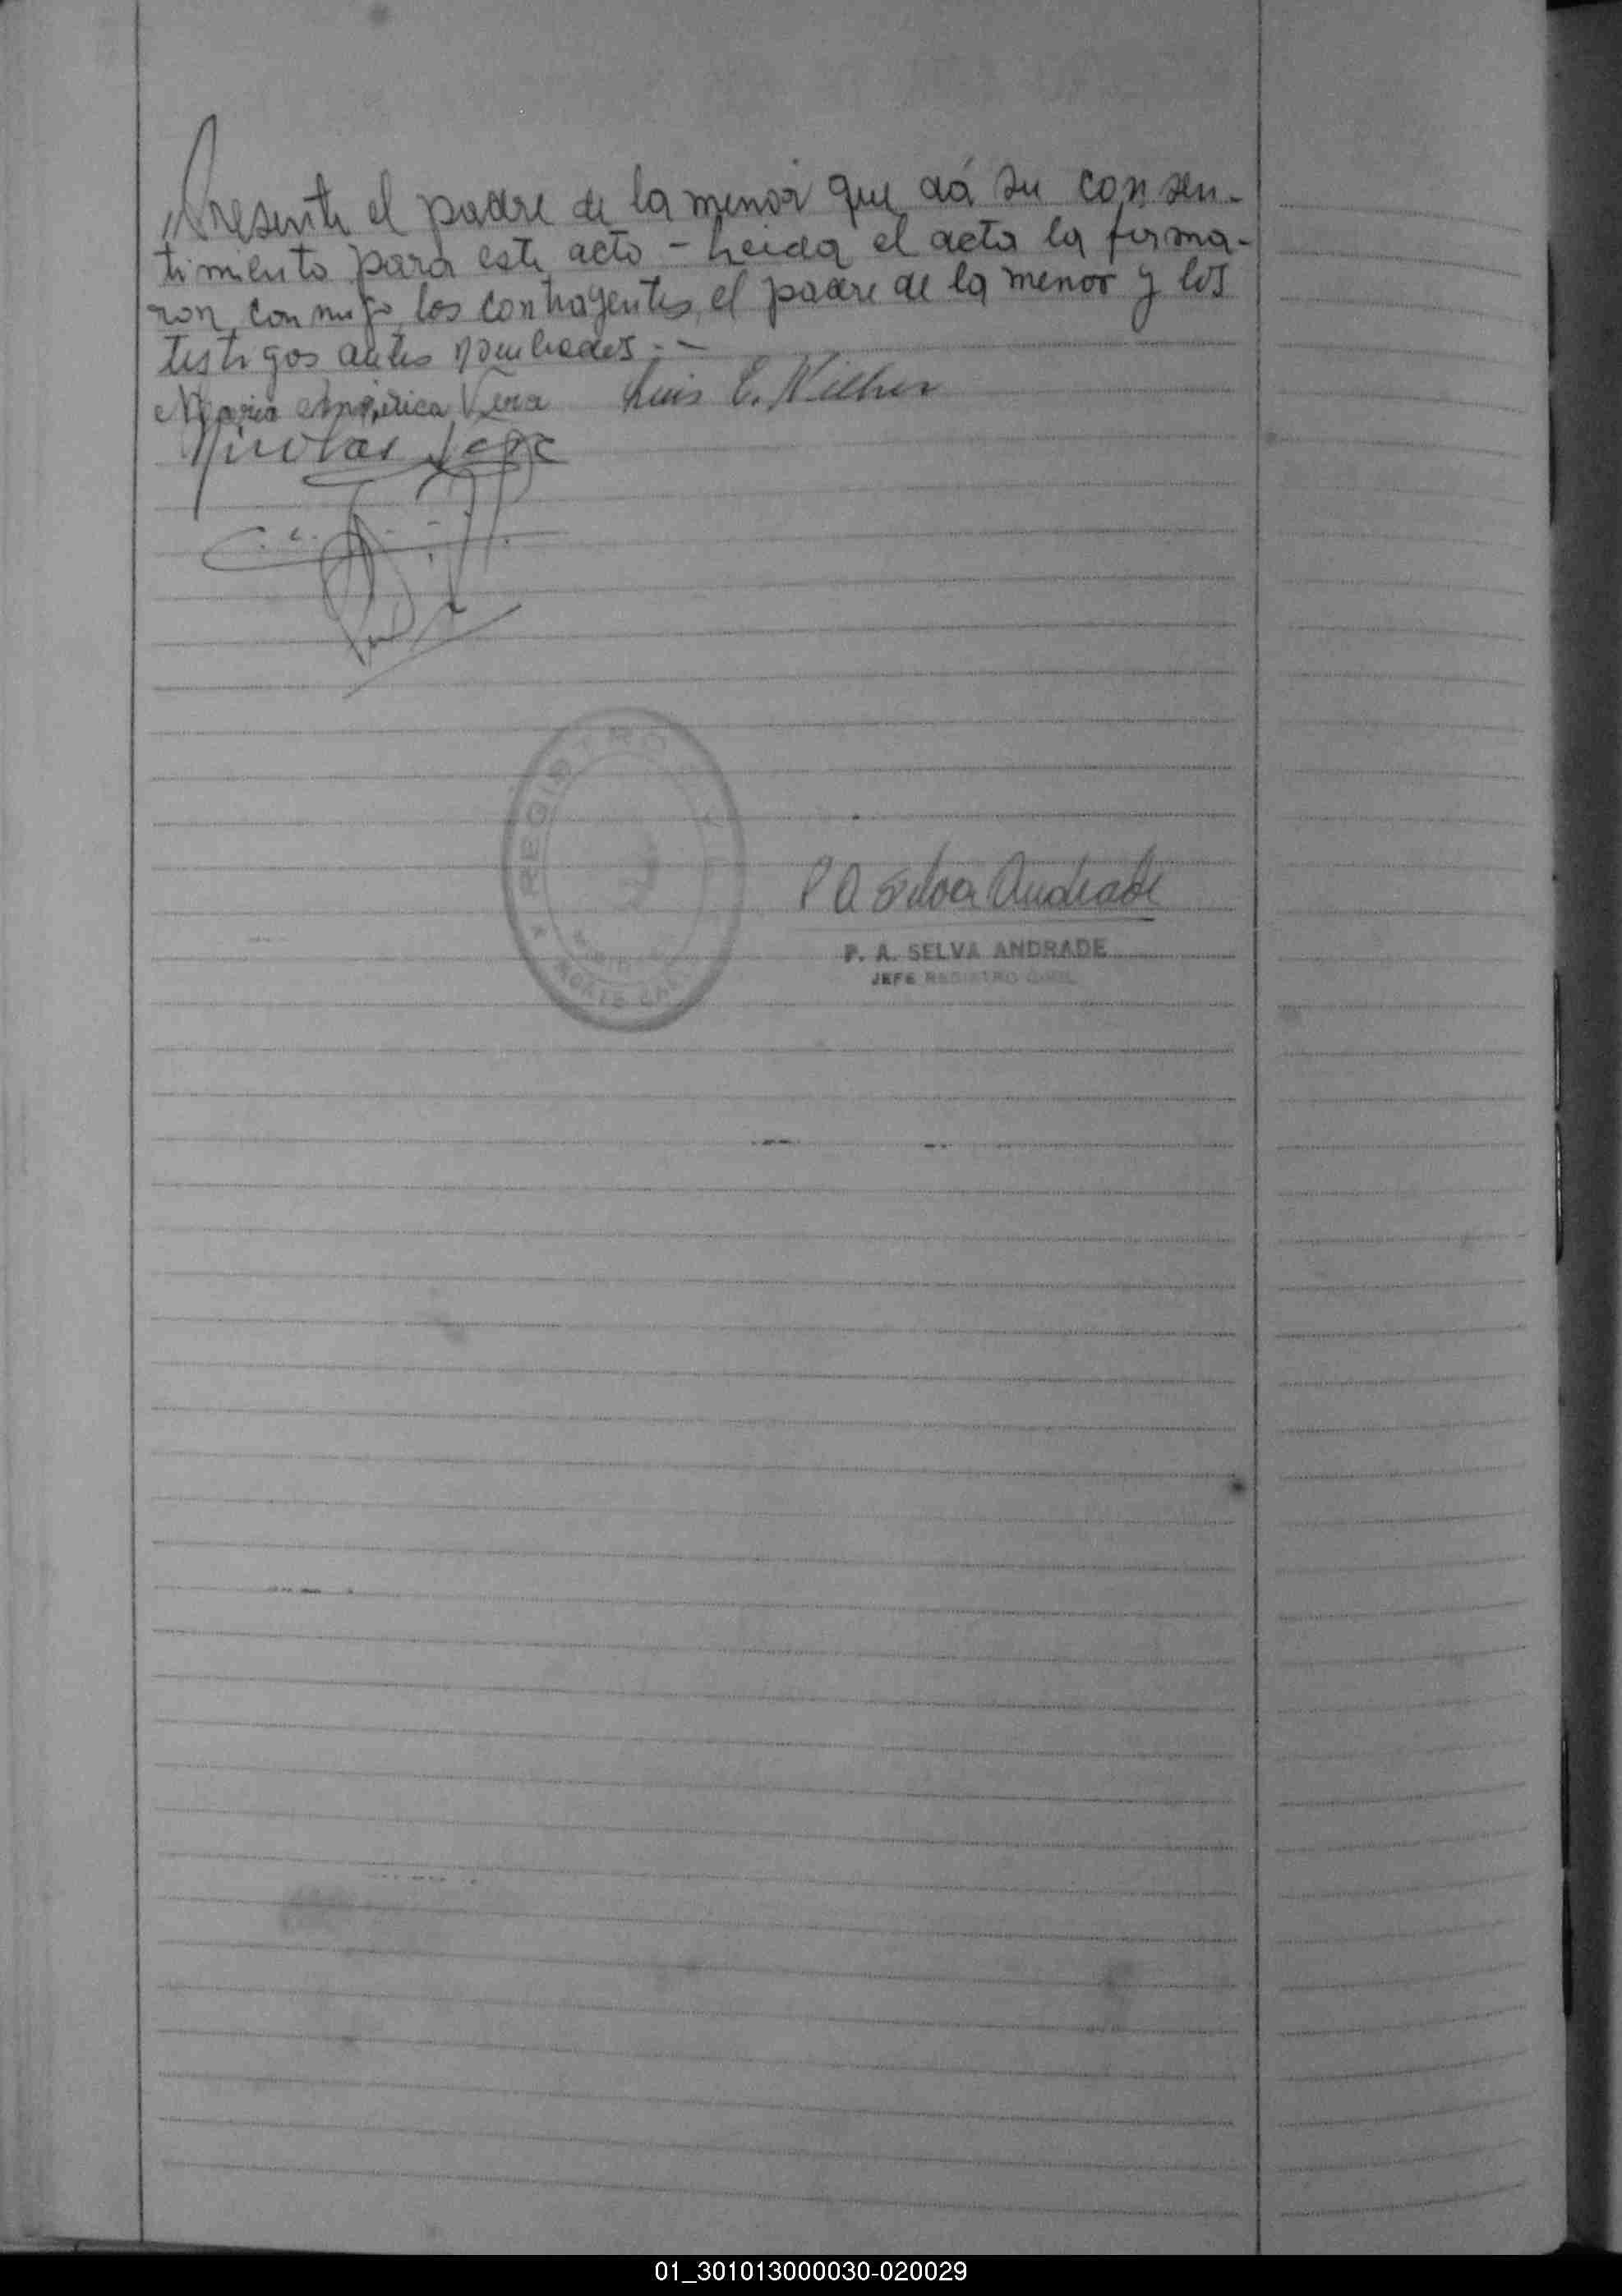 Presente el padre de la menor que dá su consen-
timiento para este acto - Leida el acta la firma-
ron conmigo los contrayentes, el padre de la menor y los
testigos antes nombrados.-
Maria Vera Luis E.
Nicolas
REGISTRO CIVIL
NORTE
P A Selva Andrade
P. A. SELVA ANDRADE
JEFE REGISTRO CIVIL
01_301013000030-020029